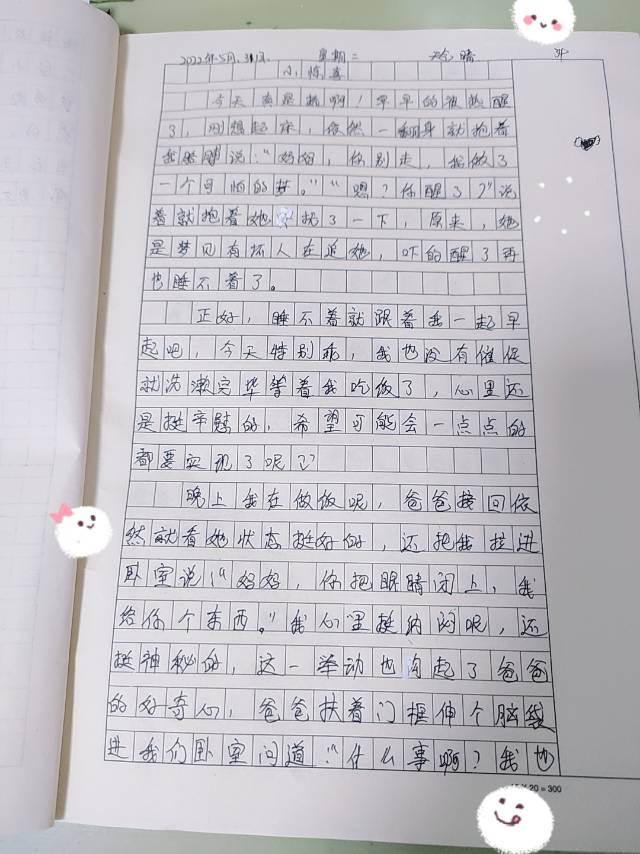 2022年5月31日 星期二 天气 晴 34
小惊喜
今天真是热啊！早早的被热醒
了，刚想起床，依然一翻身就抱着
我胳膊说："妈妈，你别走，我做了
一个可怕的梦。""嗯？你醒了？"说
着就抱着她安抚了一下，原来，她
是梦见有坏人在追她，吓的醒了再
也睡不着了。
正好，睡不着就跟着我一起早
起吧，今天特别乖，我也没有催促
就洗漱完毕等着我吃饭了，心里还
是挺辛慰的，希望可能会一点点的
都要实现了呢
晚上我在做饭呢，爸爸接回依
然就看她状态挺好的，还把我拉进
卧室说："妈妈，你把眼睛闭上，我
给你个东西。"我心里挺纳闷呢，还
挺神秘的，这一举动也勾起了爸爸
的好奇心，爸爸扶着门框伸个脑袋
进我们卧室问道："什么事啊？我也
15×20=300